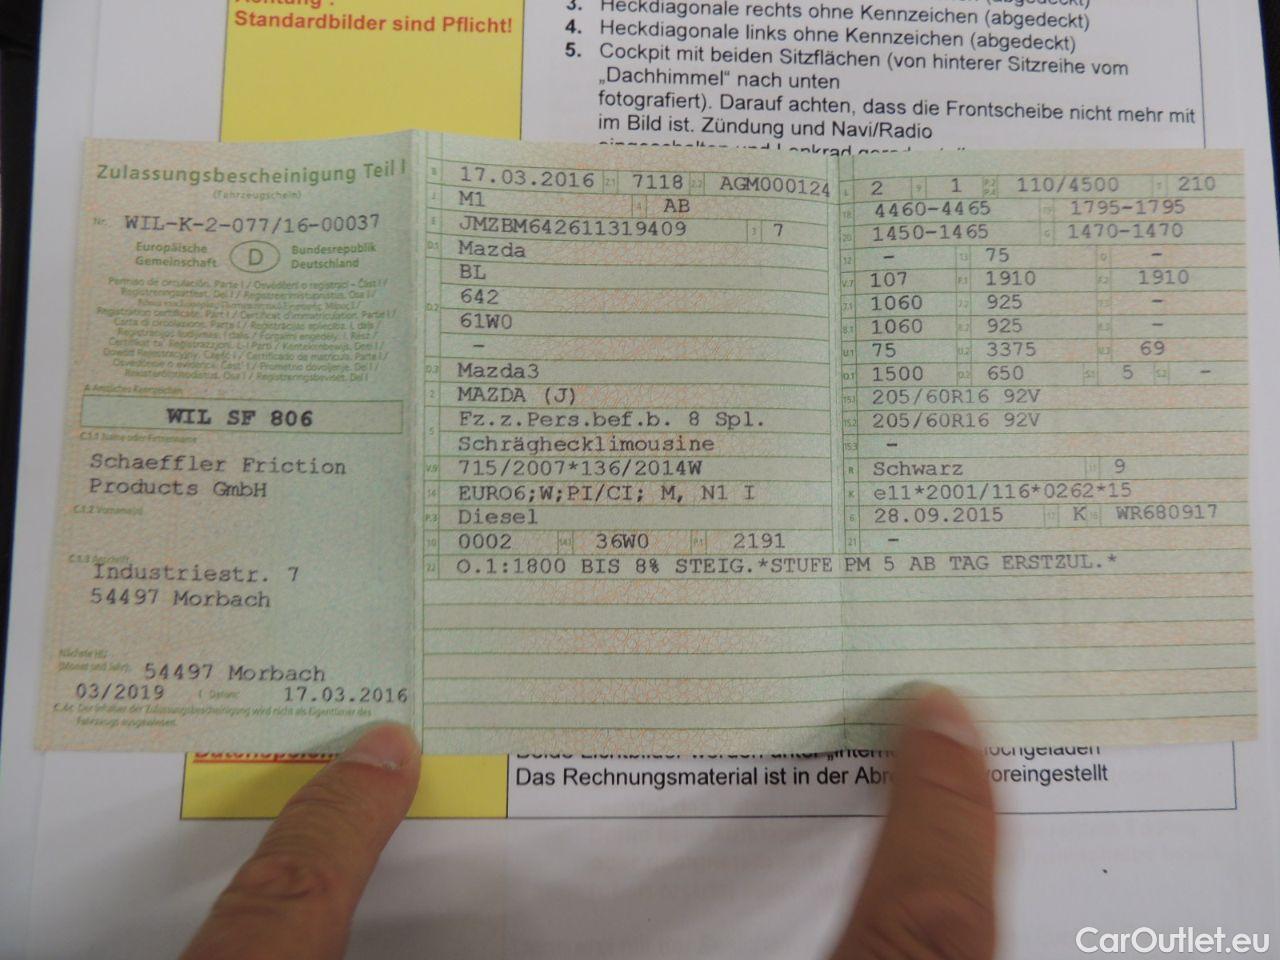 Standardbilder sind Pflicht!
3. Heckdiagonale rechts ohne Kennzeichen (abgedeckt)
4. Heckdiagonale links ohne Kennzeichen (abgedeckt)
5. Cockpit mit beiden Sitzflächen (von hinterer Sitzreihe vom
„Dachhimmel" nach unten
fotografiert). Darauf achten, dass die Frontscheibe nicht mehr mit
im Bild ist. Zündung und Navi/Radio
Zulassungsbescheinigung Teil I
(Fahrzeugschein)
Nr. WIL-K-2-077/16-00037
Europäische Gemeinschaft
D
Bundesrepublik Deutschland
A Amtliches Kennzeichen
WIL SF 806
C.1.1 Name oder Firmenname
Schaeffler Friction
Products GmbH
C.1.2 Vorname(n)
C.1.3 Anschrift
Industriestr. 7
54497 Morbach
Nächste HU
(Monat und Jahr)
54497 Morbach
03/2019 I Datum: 17.03.2016
C.4c Der Inhaber der Zulassungsbescheinigung wird nicht als Eigentümer des
Fahrzeugs ausgewiesen.
B 17.03.2016 2.1 7118 2.2 AGM000124
J M1 4 AB
E JMZBM642611319409 3 7
D.1 Mazda
BL
D.2 642
61W0
–
D.3 Mazda3
2 MAZDA (J)
5 Fz.z.Pers.bef.b. 8 Spl.
Schräghecklimousine
V.9 715/2007*136/2014W
14 EURO6;W;PI/CI; M, N1 I
P.3 Diesel
10 0002 14.1 36W0 P.1 2191
22 O.1:1800 BIS 8% STEIG.*STUFE PM 5 AB TAG ERSTZUL.*
L 2 9 1 P.2 P.4 110/4500 T 210
18 4460-4465 19 1795-1795
20 1450-1465 G 1470-1470
12 – 13 75 Q –
V.7 107 F.1 1910 F.2 1910
7.1 1060 7.2 925 7.3 –
8.1 1060 8.2 925 8.3 –
U.1 75 U.2 3375 U.3 69
O.1 1500 O.2 650 S.1 5 S.2 –
15.1 205/60R16 92V
15.2 205/60R16 92V
15.3 –
R Schwarz 11 9
K e11*2001/116*0262*15
6 28.09.2015 17 K 16 WR680917
21 –
Das Rechnungsmaterial ist in der voreingestellt
CarOutlet.eu